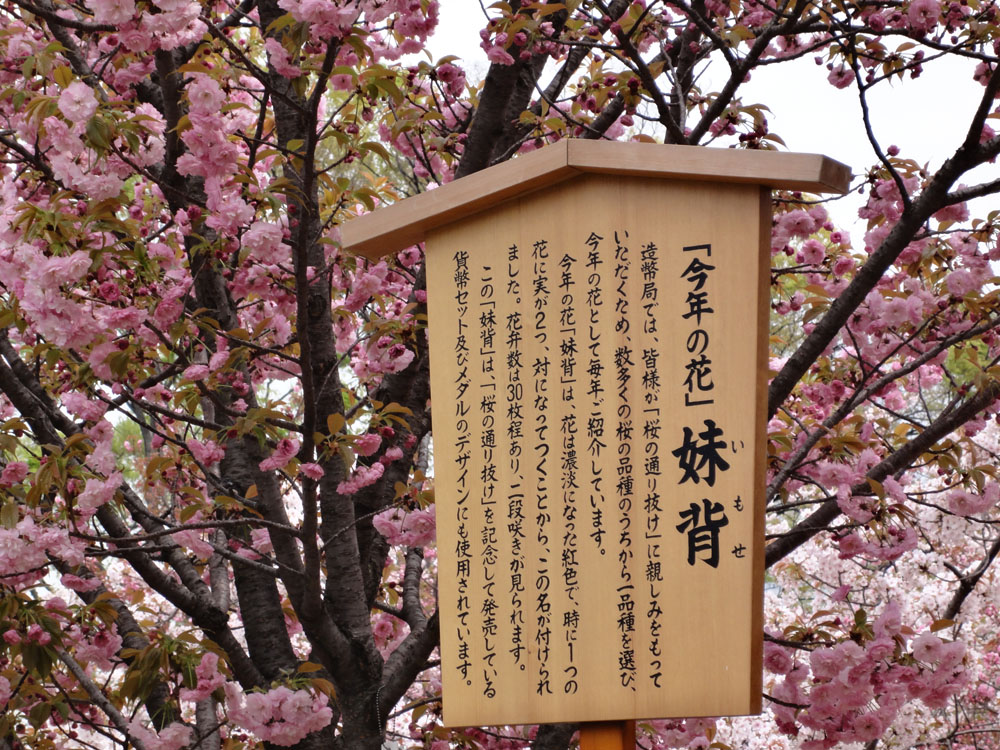 「今年の花」妹背
いもせ
造幣局では、皆様が「桜の通り抜け」に親しみをもって
いただくため、数多くの桜の品種のうちから一品種を選び、
今年の花として毎年ご紹介しています。
今年の花「妹背」は、花は濃淡になった紅色で、時に1つの
花に実が2つ、対になってつくことから、この名が付けられ
ました。花弁数は30枚程あり、二段咲きが見られます。
この「妹背」は、「桜の通り抜け」を記念して発売している
貨幣セット及びメダルのデザインにも使用されています。